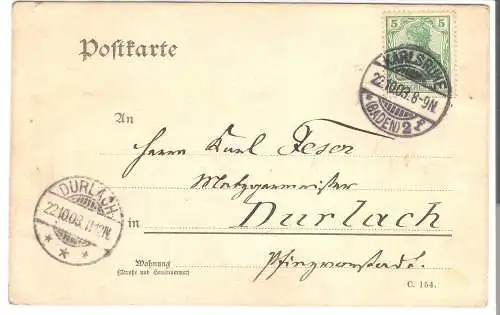 Postkarte
5 5
KARLSRUHE
22.10.03. 8-9N.
*(BADEN) 2 f
An
Herrn Karl
Metzgermeister
in Durlach
Pfinzvorstadt.
DURLACH
22.10.03. 11-12N.
Wohnung
(Straße und Hausnummer)
C. 154.